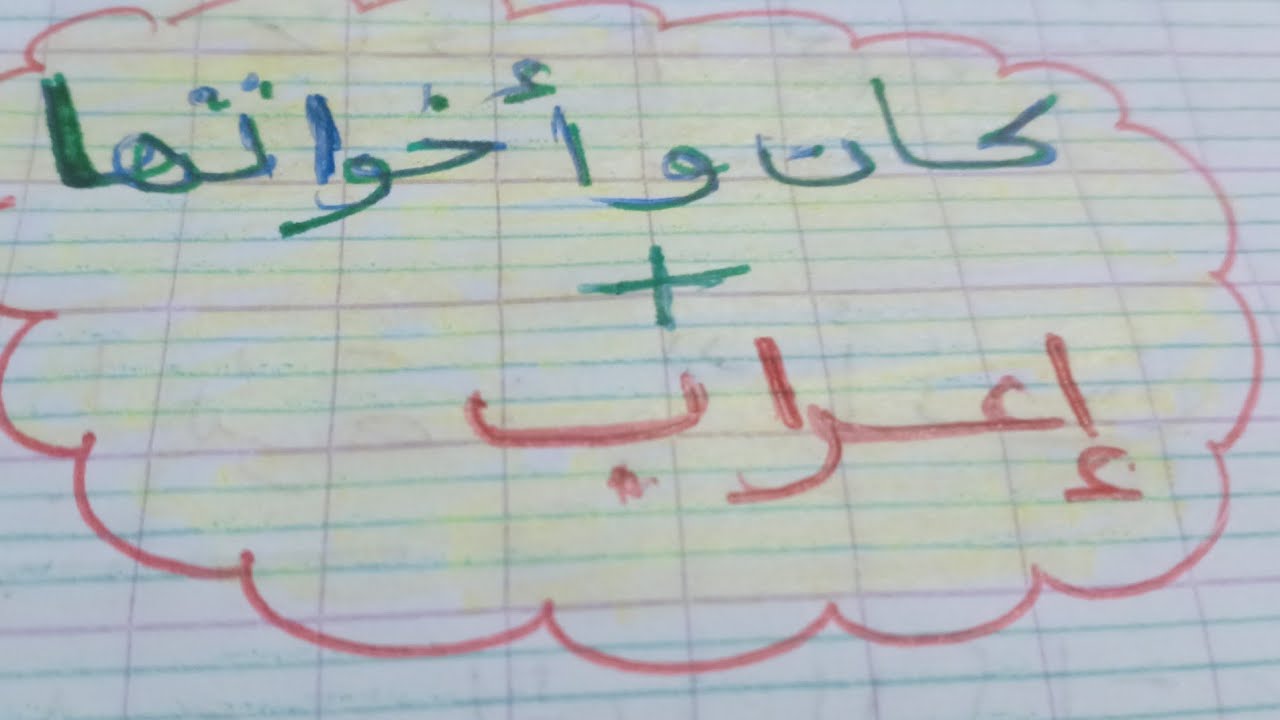 كان وأخواتها
+
إعراب